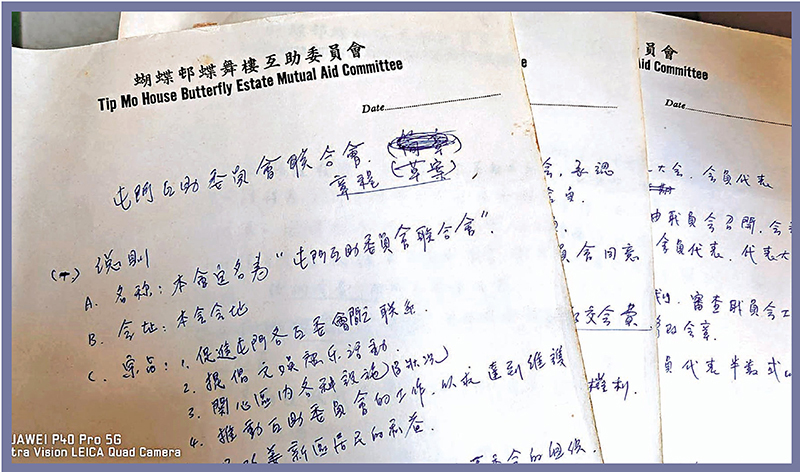 蝴蝶邨蝶舞樓互助委員會
Tip Mo House Butterfly Estate Mutual Aid Committee
Date
屯門互助委員會联合會.
章程 (草案),
总則
A. 名称: 本會定名為 "屯門互助委員會联合會".
B. 会址: 本会会地
C. 宗旨: 1. 促進屯門各互委會間之联系.
2. 提倡文娛康乐活動.
3. 関心區内各种設施
4. 推動互助委員會的工作, 以求達到維護
區居民的利益.
e
会, 承認
員会同意
交会費
權利.
員會
Aid Committee
Date
大会, 会員代表
由職員会召開, 会
会員代表, 代表大
審查職員会工
員代表半數或
HUAWEI P40 Pro 5G
Ultra Vision LEICA Quad Camera